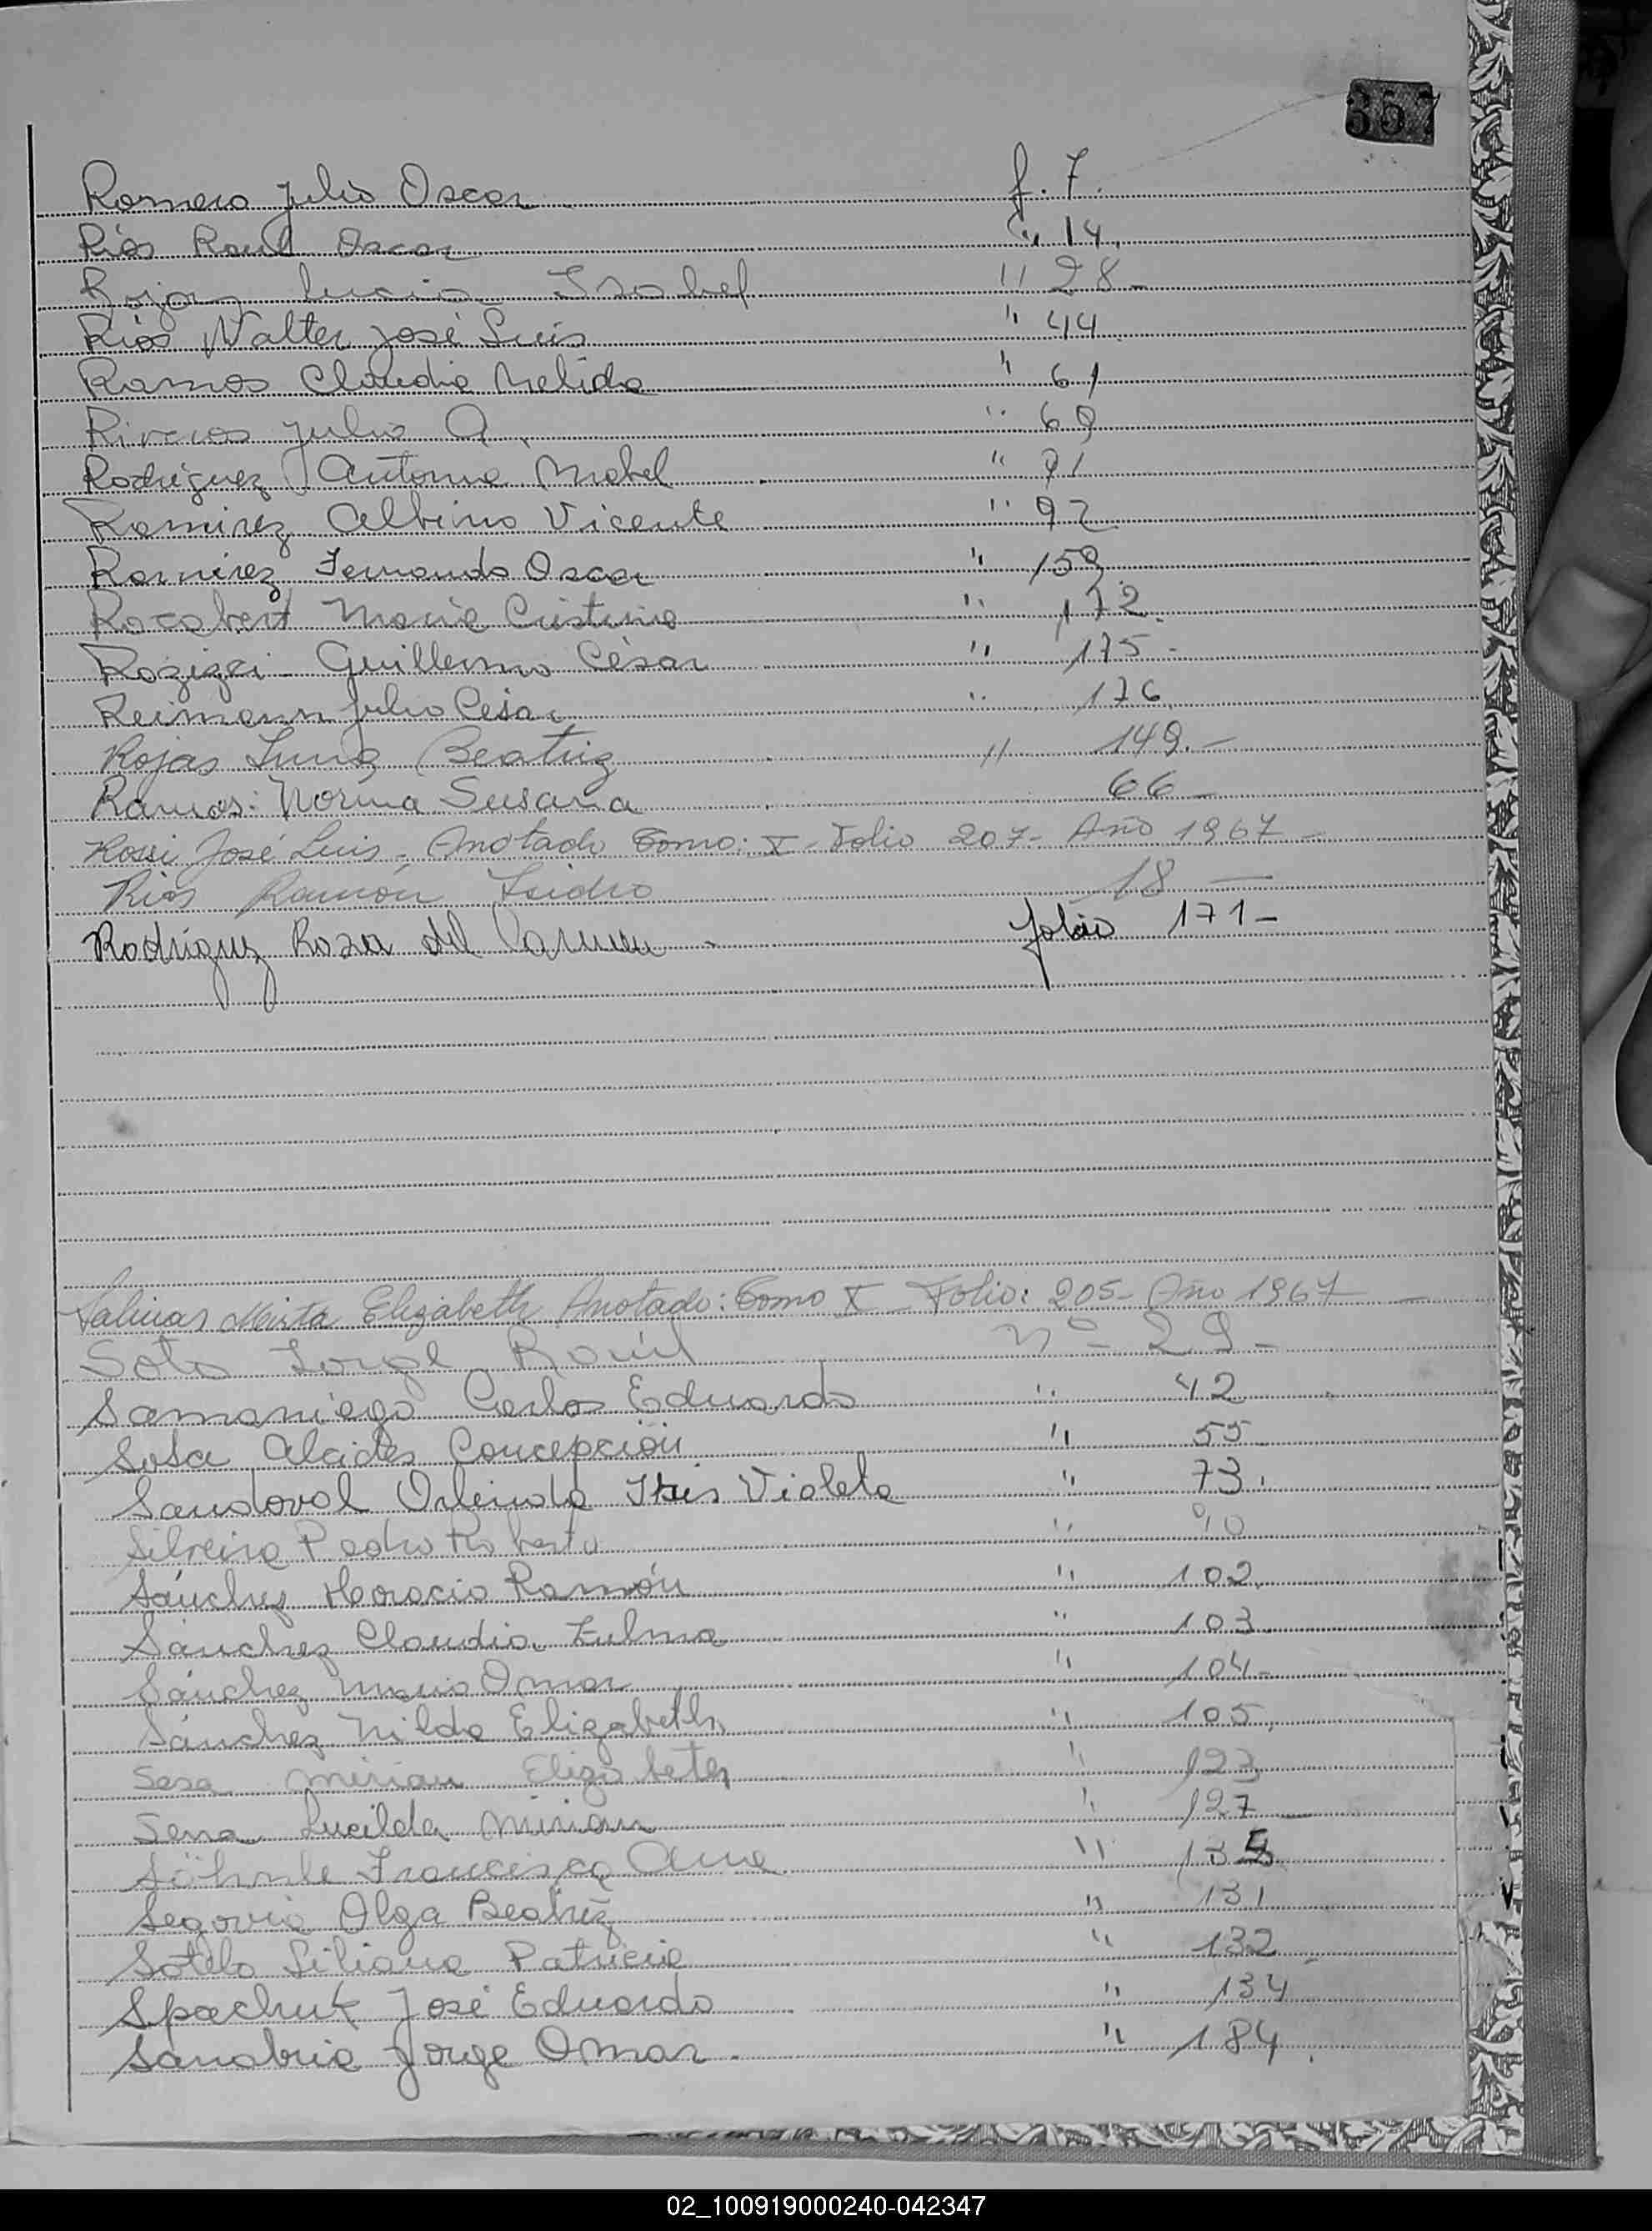 357
Romero Julio Oscar f. 7.
Ríos Raul Oscar " 14.
Rojas Lucia Isabel " 28-
Ríos Walter José Luis " 44
Ramos Claudia Nelida " 61
Riveros Julio A. " 69
Rodriguez Antonia Mabel " 91
Ramirez Albino Vicente " 92
Ramirez Fernando Oscar " 159.
Rocabert María Cristina " 172.
Guillermo César " 175-
Reimann Julio César " 176
Rojas Luna Beatriz " 149.-
Ramos: Norma Susana 66-
Rossi José Luis - Anotado Tomo: I - Folio 207- Año 1967-
Rios Ramón Isidro 18-
Rodriguez Rosa del Carmen - folio 171-
Salinas Mirta Elizabeth Anotado: Tomo I - Folio: 205- Año 1967-
Soto Jorge Raúl nº- 29-
Samaniego Carlos Eduardo " 42
Sosa Alcides Concepción " 55
Sandoval Orlinda Iris Violeta " 73.
Silveira Pedro Roberto " 90
Sánchez Horacio Ramón " 102.
Sánchez Claudia Zulma " 103.
Sánchez Mario Omar " 104-
Sánchez Nilda Elizabeth " 105.
Sosa Mirian Elizabeth " 123
Sena Lucilda Mirian " 127-
Francisca Ana "
Segovia Olga Beatriz " 131
Sotelo Liliana Patricia " 132-
Spachuk José Eduardo " 134
Sanabria Jorge Omar. " 184.
02_100919000240-042347